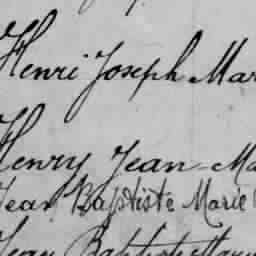 Henri Joseph Mar
Henry Jean-Ma
Jean Baptiste Marie
Jean Baptiste Marie